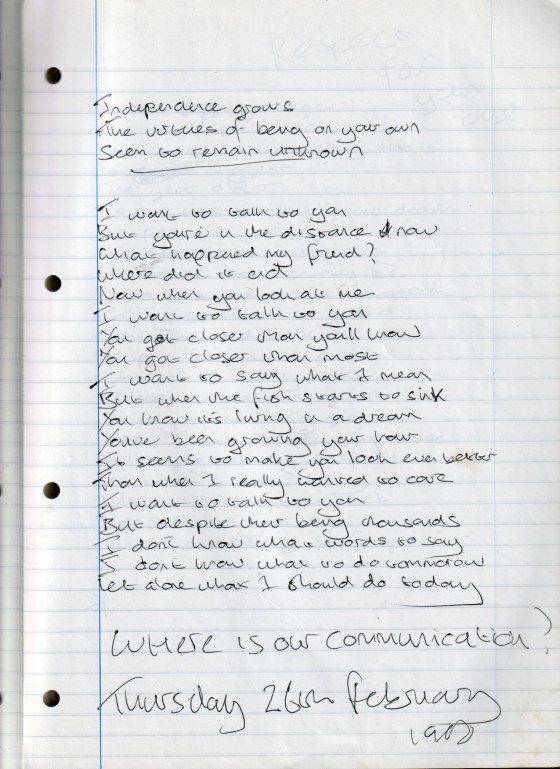 Respect
for
your
Independence grows
The virtues of being on your own
Seem to remain unknown
I want to talk to you
But you're in the distance now
What happened my friend?
Where did it end
Now when you look at me
I want to talk to you
You got closer than you'll know
You got closer than most
I want to say what I mean
But when the fish starts to sink
You know it's living in a dream
You've been growing your hair
It seems to make you look even better
Than when I really wanted to care
I want to talk to you
But despite their being thousands
I don't know what words to say
I don't know what to do tommorow
Let alone what I should do today
Where is our communication?
Thursday 26th February